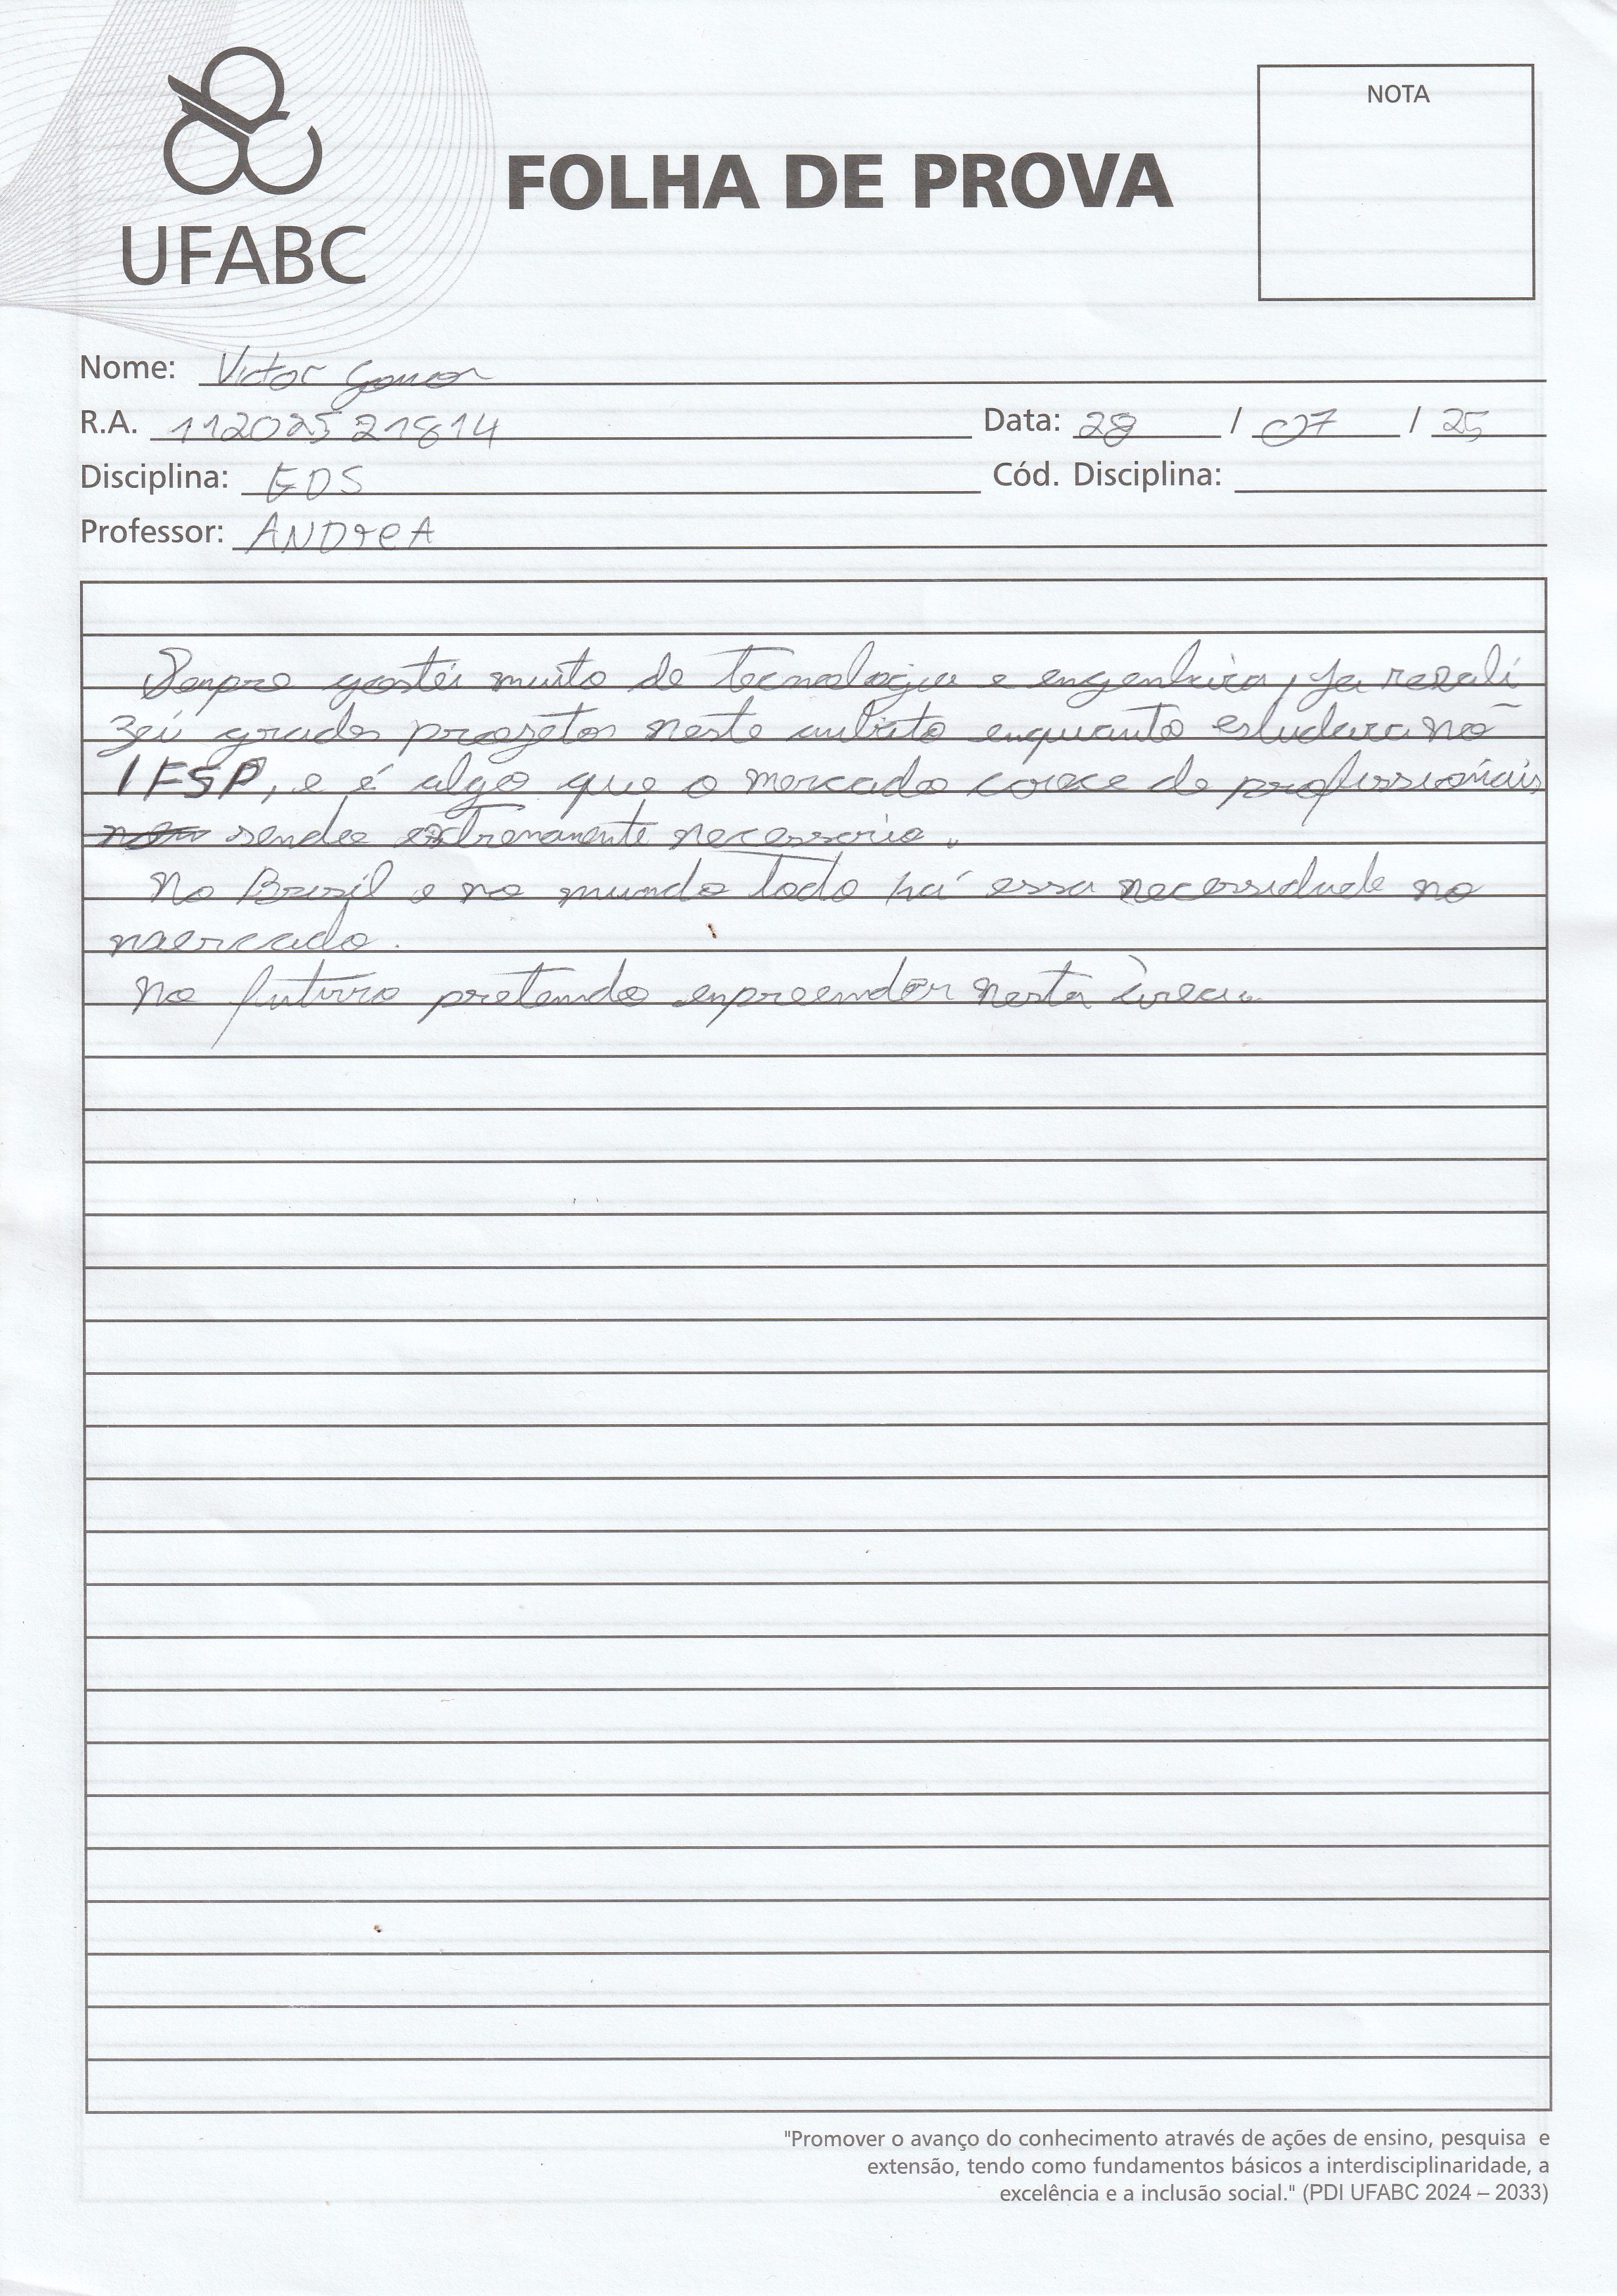 NOTA
FOLHA DE PROVA
UFABC
Nome: Victor
R.A. 11202521814 Data: 28 / 07 / 25
Disciplina: EDS Cód. Disciplina:
Professor: ANDREA
Senpre gostei muito de tecnologia e engenharia, ja reali
zei grades projetos neste ambito enquanto estudava no
IFSP, e é algo que o mercado carece de profissionais
sendo extremamente necessario.
No Brasil e no mundo todo há essa necessidade no
mercado.
No futuro pretendo enpreender nesta àrea.
"Promover o avanço do conhecimento através de ações de ensino, pesquisa e
extensão, tendo como fundamentos básicos a interdisciplinaridade, a
excelência e a inclusão social." (PDI UFABC 2024 – 2033)